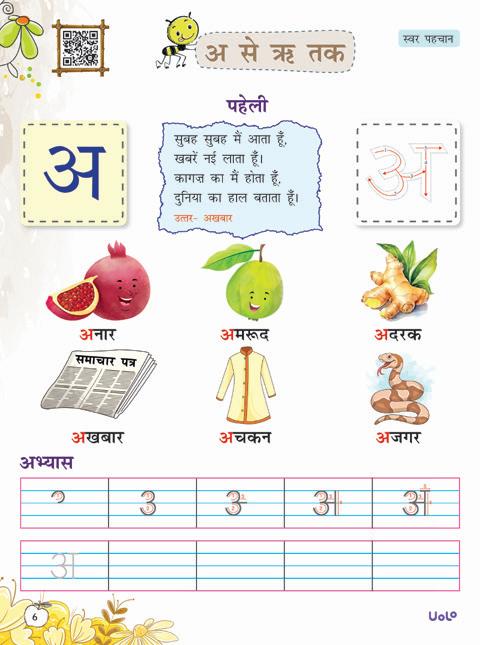 अ से ऋ तक
स्वर पहचान
पहेली
अ
सुबह सुबह मैं आता हूँ,
खबरें नई लाता हूँ।
कागज़ का मैं होता हूँ,
दुनिया का हाल बताता हूँ।
उत्तर- अखबार
अ
अनार
अमरूद
अदरक
समाचार पत्र
अखबार
अचकन
अजगर
अभ्यास
अ
6
UOLO